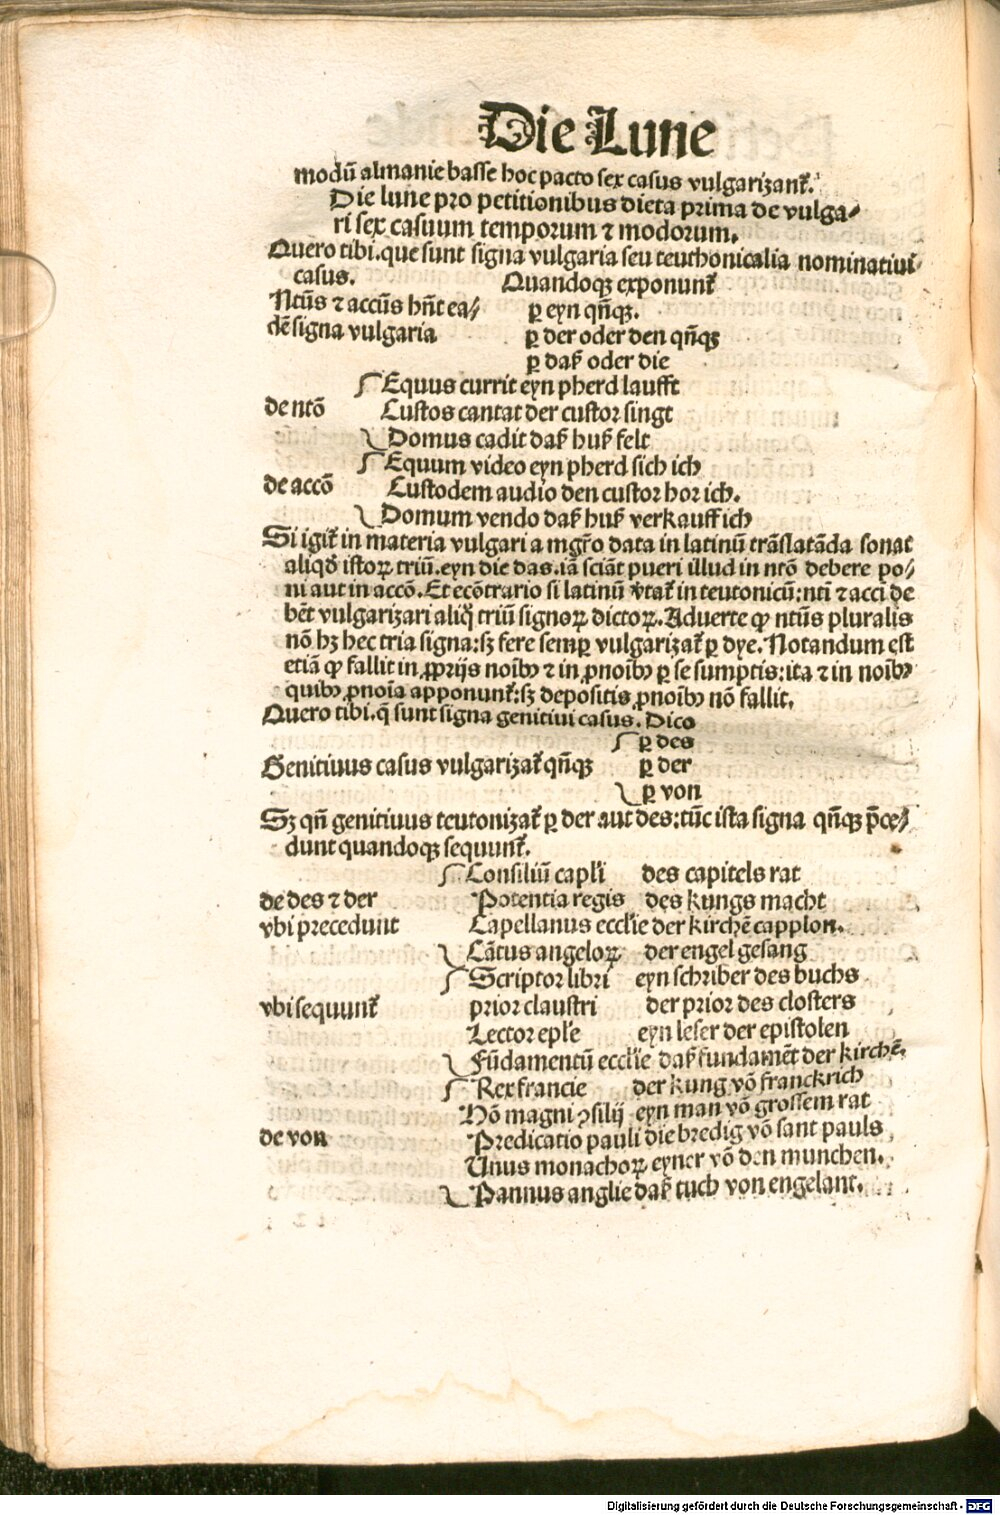 Die Lune
modū almanie basse hoc pacto sex casus vulgarizant᷑.
Die lune pro petitionibus dieta prima de vulga⸗
ri sex casuum temporum ⁊ modorum.
Quero tibi. que sunt signa vulgaria seu teuthonicalia nominatiui
casus. Quandoqꝫ exponunt᷑
Ntūs ⁊ accūs hn̄t ea⸗ ꝑ eyn qn̄qꝫ.
dē signa vulgaria ꝑ der oder den qn̄qꝫ
ꝑ daß oder die
Equus currit eyn pherd laufft
de ntō Custos cantat der custor singt
Domus cadit daß huß felt
Equum video eyn pherd sich ich
de accō Custodem audio den custor hor ich.
Domum vendo daß huß verkauff ich
Si igit᷑ in materia vulgari a mgr̄o data in latinū trāslatāda sonat
aliqd̄ istoꝝ triū. eyn die das. iā sciāt pueri illud in ntō debere po⸗
ni aut in accō. Et ecōtrario si latinū v̄tat᷑ in teutonicū: nti ⁊ acci de
bēt vulgarizari aliq̄ triū signoꝝ dictoꝝ. Aduerte ꝙ ntūs pluralis
nō hꝫ hec tria signa: sꝫ fere semꝑ vulgarizat᷑ ꝑ dye. Notandum est
etiā ꝙ fallit in ꝓprijs noībꝰ ⁊ in ꝓnoībꝰ ꝑ se sumptis: ita ⁊ in noībꝰ
quibꝰ ꝓnoīa apponunt᷑: sꝫ depositis ꝓnoībꝰ nō fallit.
Quero tibi. q̄ sunt signa genitiui casus. Dico
ꝑ des
Genitiuus casus vulgarizat᷑ qn̄qꝫ ꝑ der
ꝑ von
Sꝫ qn̄ genitiuus teutonizat᷑ ꝑ der aut des: tūc ista signa qn̄qꝫ p̄ce⸗
dunt quandoqꝫ sequunt᷑.
Consiliū capl̄i des capitels rat
de des ⁊ der Potentia regis des kungs macht
vbi precedunt Capellanus eccl̄ie der kirchē capplon.
Cātus angeloꝝ der engel gesang
Scriptor libri eyn schriber des buchs
vbi sequunt᷑ prior claustri der prior des closters
Lector epl̄e eyn leser der epistolen
Fūdamentū eccl̄ie daß fundamēt der kirchē.
Rex francie der kung vō franckrich
Hō magni ꝯsilij eyn man vō grossem rat
de von Predicatio pauli die bredig vō sant pauls
Unus monachoꝝ eyner vō den munchen.
Pannus anglie daß tuch von engelant.
Digitalisierung gefördert durch die Deutsche Forschungsgemeinschaft - DFG